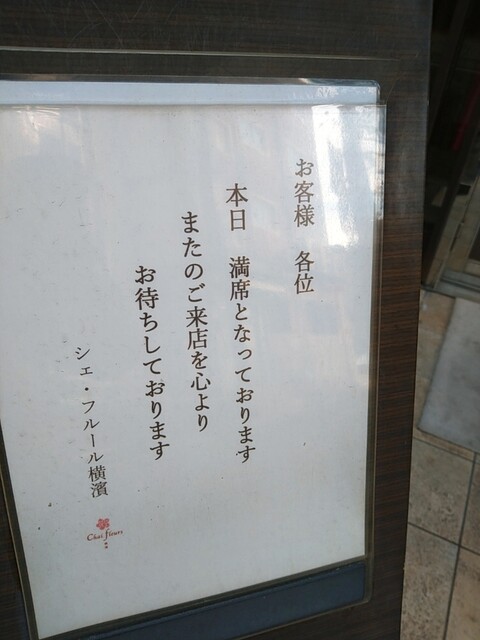 お客様 各位
本日 満席となっております
またのご来店を心より
お待ちしております
シェ・フルール横濱
Chez fleurs